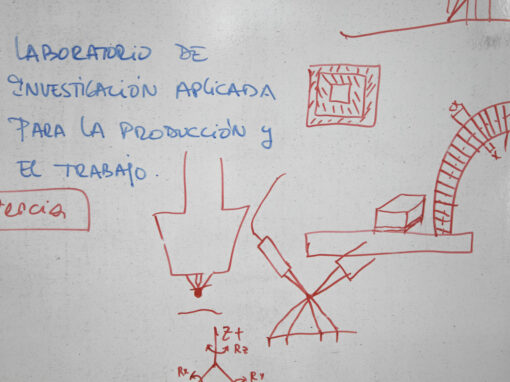 LABORATORIO DE
INVESTIGACIÓN APLICADA
PARA LA PRODUCCIÓN Y
EL TRABAJO.
Z+
RZ
RX
RY